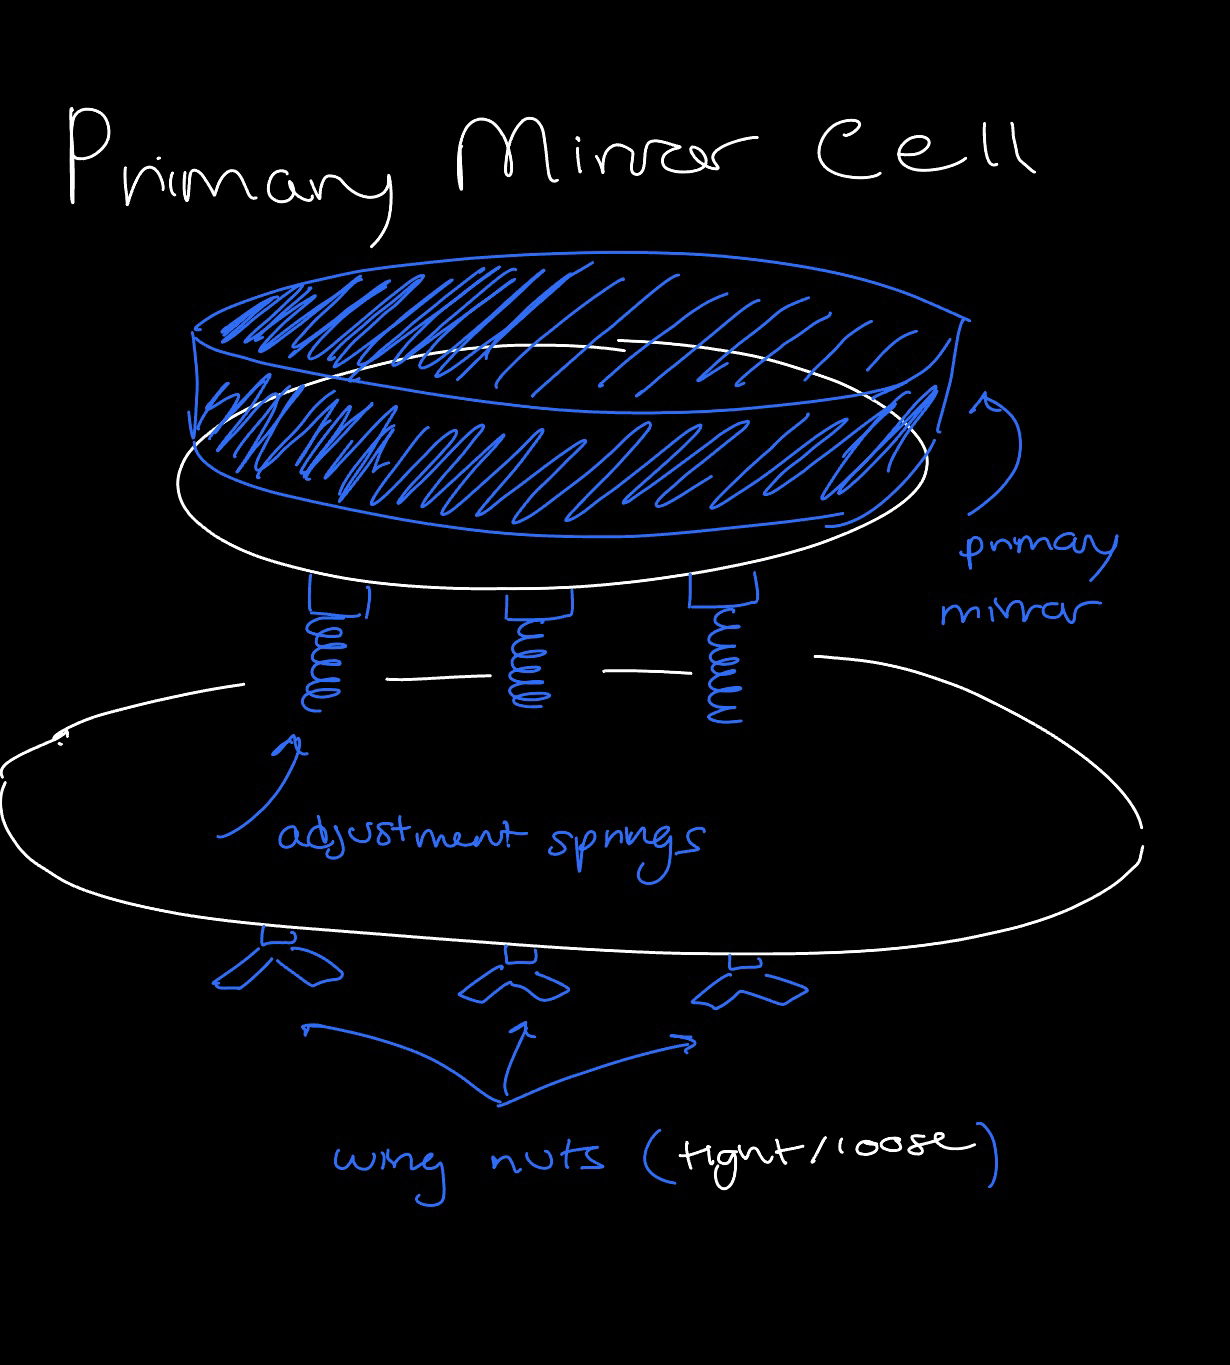 Primary Mirror Cell
primary
mirror
adjustment springs
wing nuts (tight/loose)